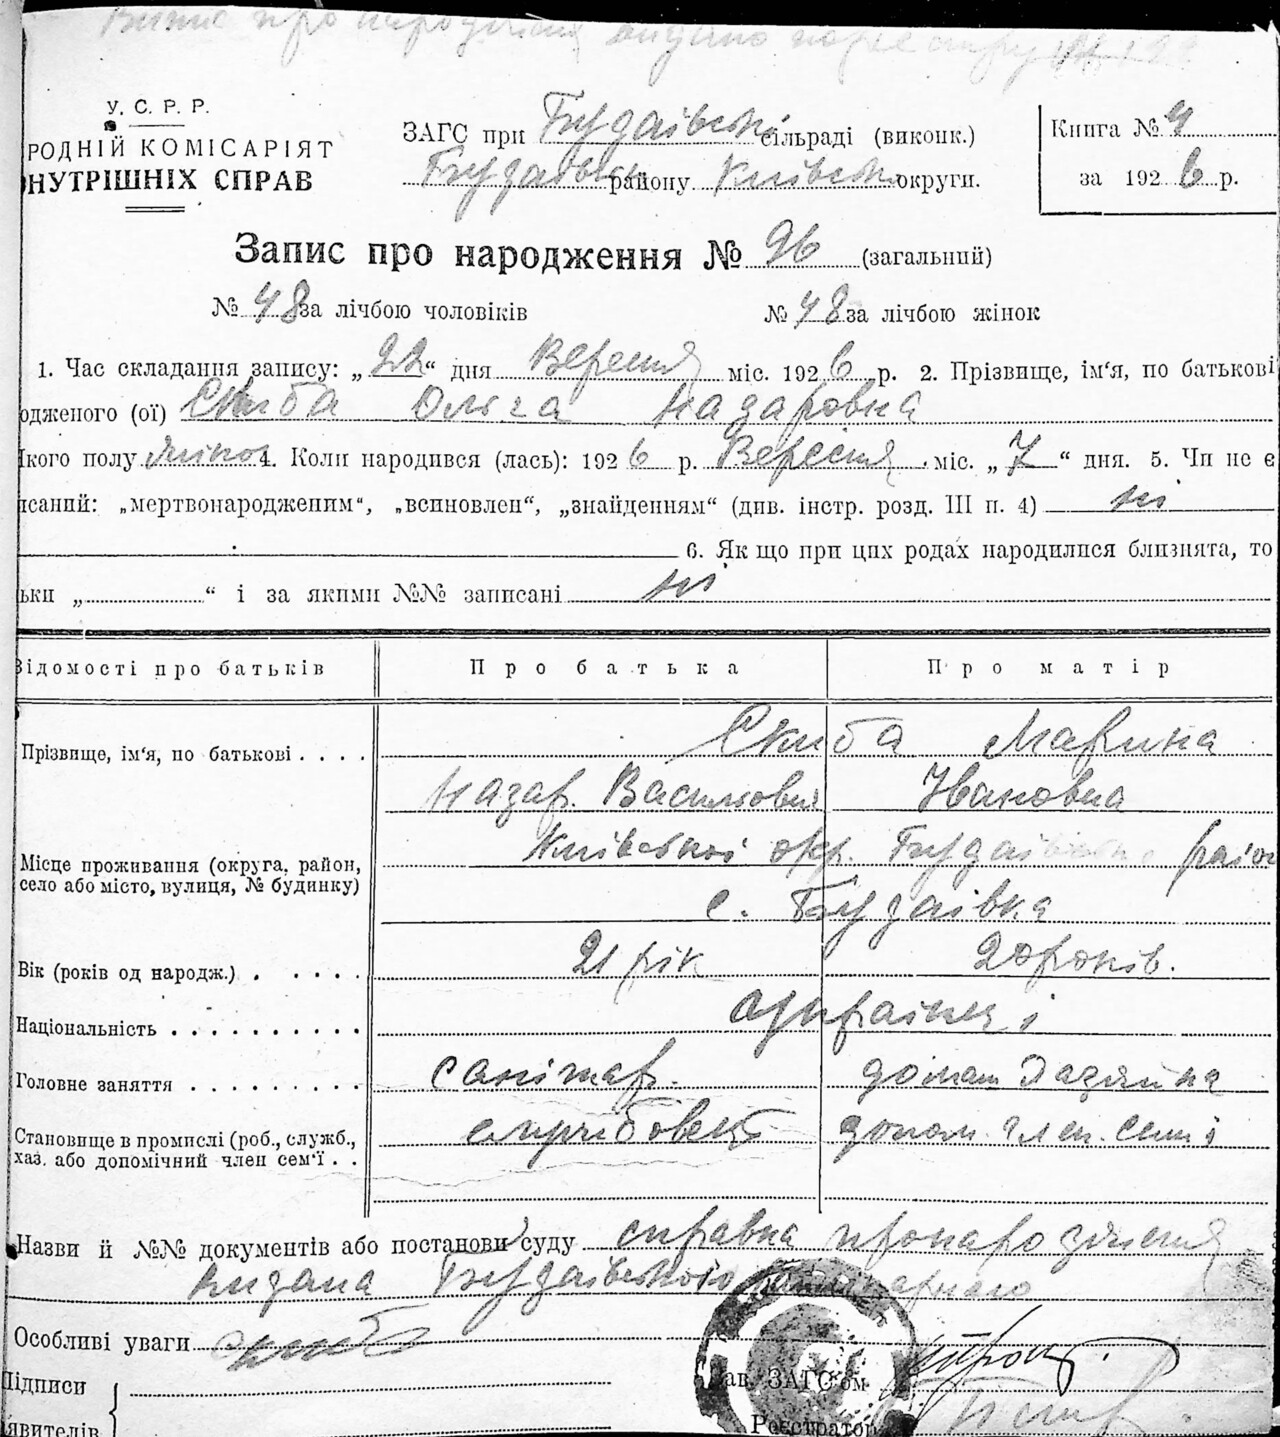 Випис про народження видано
У. С. Р. Р.
РОДНІЙ КОМІСАРІЯТ
НУТРІШНІХ СПРАВ
ЗАГС при Будаівські сільраді (виконк.)
Будаівськ району Київськ округи.
Книга № 4
за 1926 р.
Запис про народження № 96 (загальний)
№ 48 за лічбою чоловіків № 48 за лічбою жінок
1. Час складання запису: „22“ дня Вересня міс. 1926 р. 2. Прізвище, ім'я, по батькові
одженого (ої) Скиба Ольга Назаровна
якого полу жіноч 4. Коли народився (лась): 1926 р. Вересня міс. „7“ дня. 5. Чи не є
исаний: „мертвонародженим“, „всиновлен“, „знайденним“ (див. інстр. розд. III п. 4) ні
6. Як що при цих родах народилися близнята, то
ьки „ “ і за якими №№ записані ні
Відомості про батьків Про батька Про матір
Прізвище, ім'я, по батькові Скиба Марина
Назар Василіович Івановна
Місце проживання (округа, район, село або місто, вулиця, № будинку) Київської окр. Будаівськ район
с. Будаівка
Вік (років од народж.) 21 рік 20 років.
Національність Українці
Головне заняття санітар. домаш хазяйка
Становище в промислі (роб., служб., хаз. або допомічний член сем'ї службовець допом. член. семі
Назви й №№ документів або постанови суду справка про народження
видана Будаівського
Особливі уваги Скиба
Підписи
явителів
Зав. ЗАГС'ом
Реєстратор